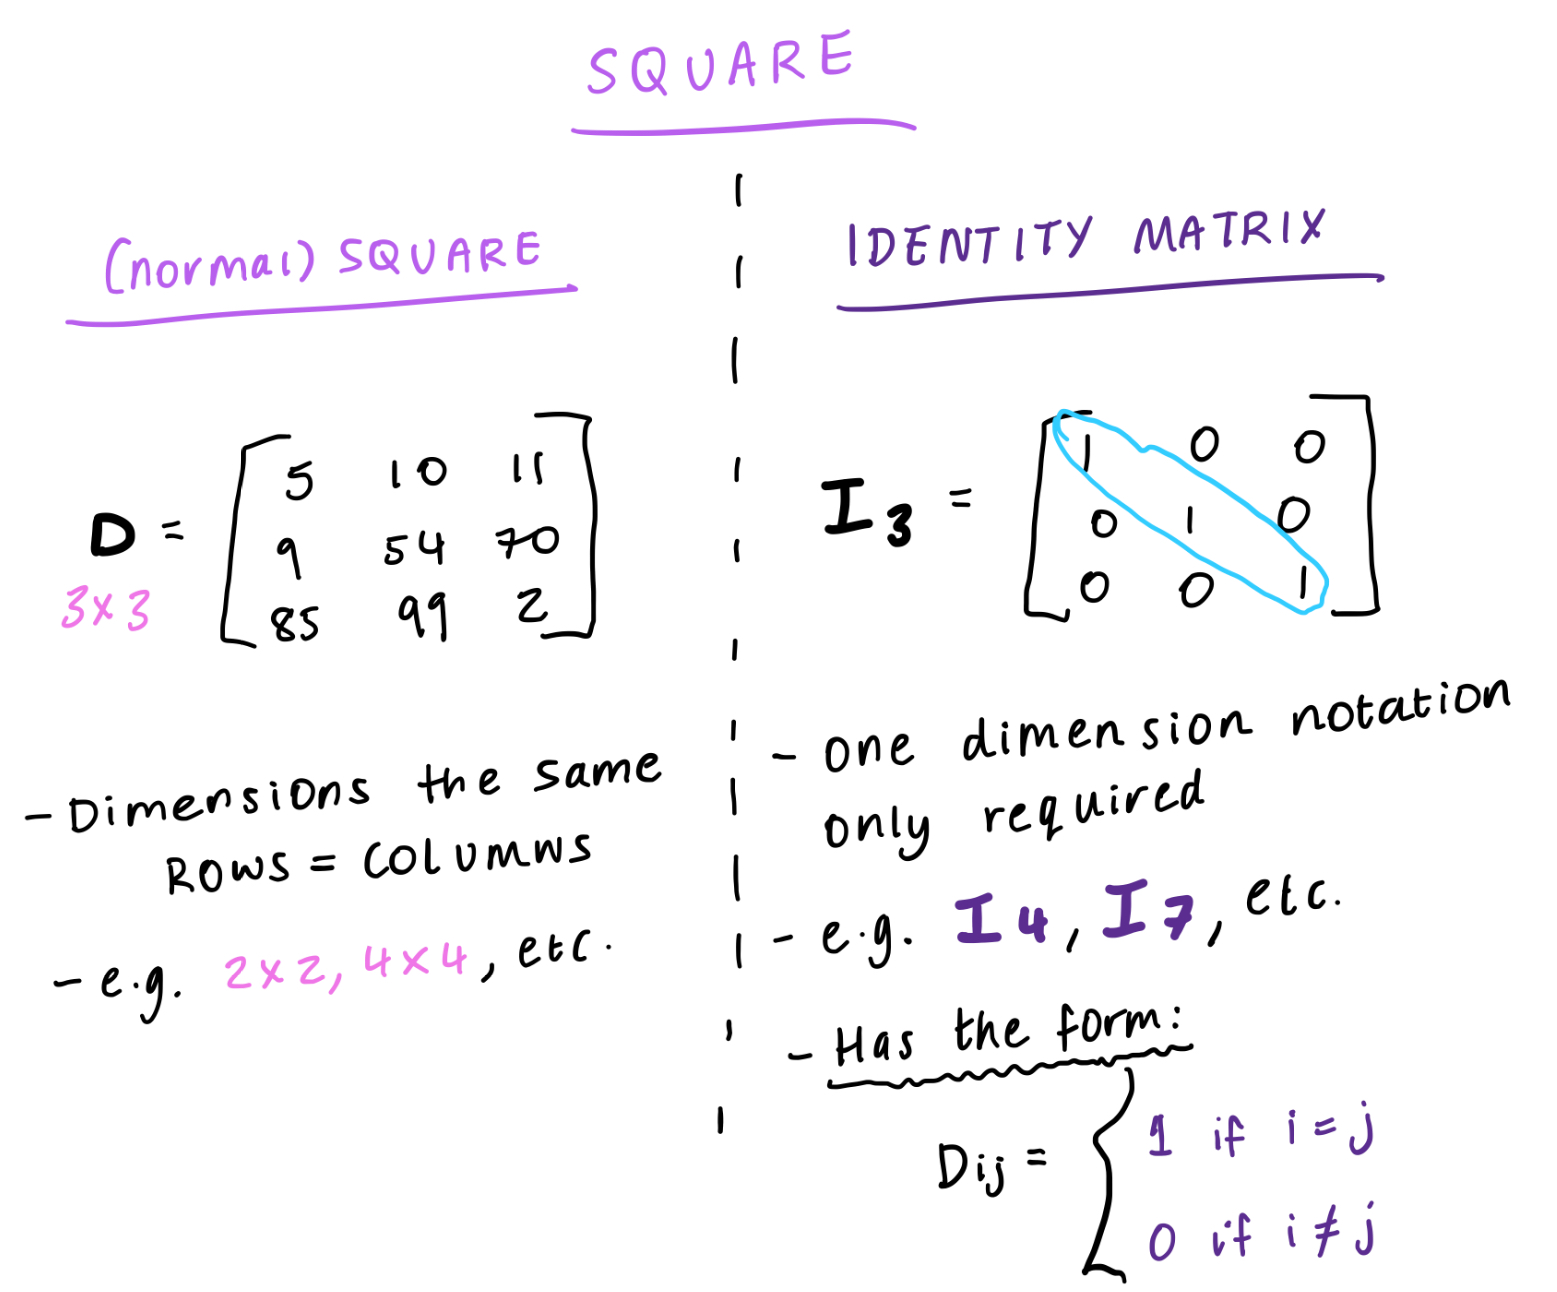 SQUARE
(normal) SQUARE
D = [ 5 10 11
9 54 70
85 99 2 ]
3x3
- Dimensions the same
ROWS = COLUMNS
- e.g. 2x2, 4x4, etc.
IDENTITY MATRIX
I3 = [ 1 0 0
0 1 0
0 0 1 ]
- one dimension notation
only required
- e.g. I4, I7, etc.
- Has the form:
Dij = { 1 if i = j
0 if i ≠ j